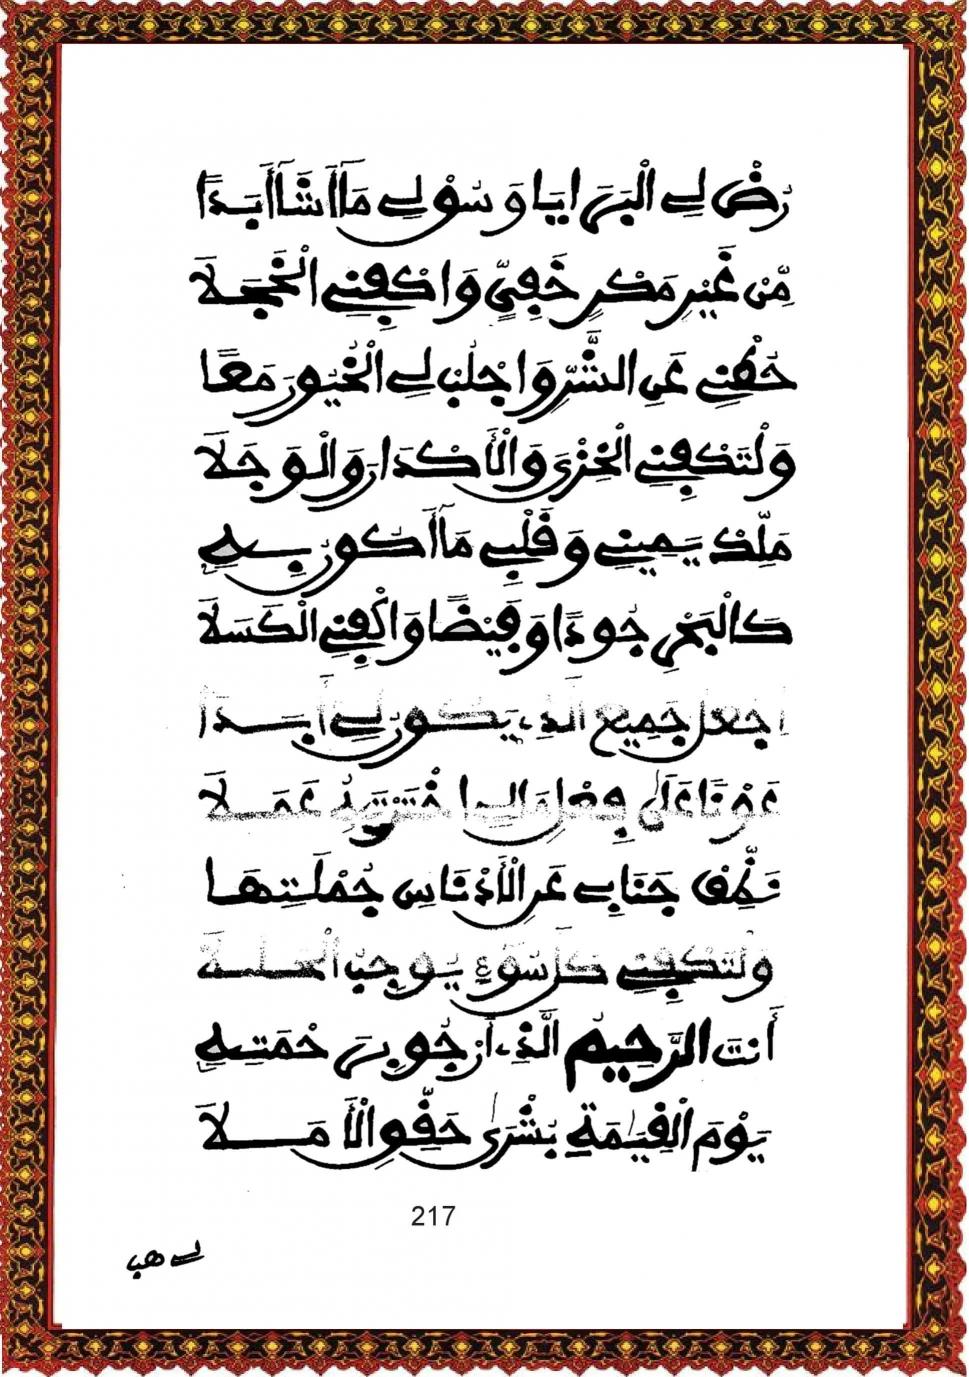 رُضْ لِي الْبَرَايَا وَسُوْ لِي مَا أَشَا أَبَدًا
مِّنْ غَيْرِ مَكْرٍ خَفِيٍّ وَاكْفِنِي الْخَجَلَا
حُطْنِي عَنِ الشَّرِّ وَاجْلُبْ لِي الْخُيُورَ مَعًا
وَلْتَكْفِنِي الْخِزْيَ وَالْأَكْدَارَ وَالْوَجَلَا
مَلِّكْ يَمِينِي وَقَلْبِي مَا أَكُونُ بِهِ
كَالْبَحْرِ جُودًا وَفَيْضًا وَاكْفِنِي الْكَسَلَا
اجْعَلْ جَمِيعَ الَّذِي يَكُونُ لِي أَبَدًا
عَوْنًا عَلَى فِعْلِ مَا اخْتَرْتَهُ عَمَلَا
نَظِّفْ جَنَابِي عَنِ الْأَدْنَاسِ جُمْلَتِهَا
وَلْتَكْفِنِي كُلَّ سُوءٍ يُوجِبُ
أَنْتَ الرَّحِيمُ الَّذِي أَرْجُو بِرَحْمَتِهِ
يَوْمَ الْقِيَٰمَةِ بُشْرَىٰ حَقِّقِ الْأَمَلَا
217
لِي هب